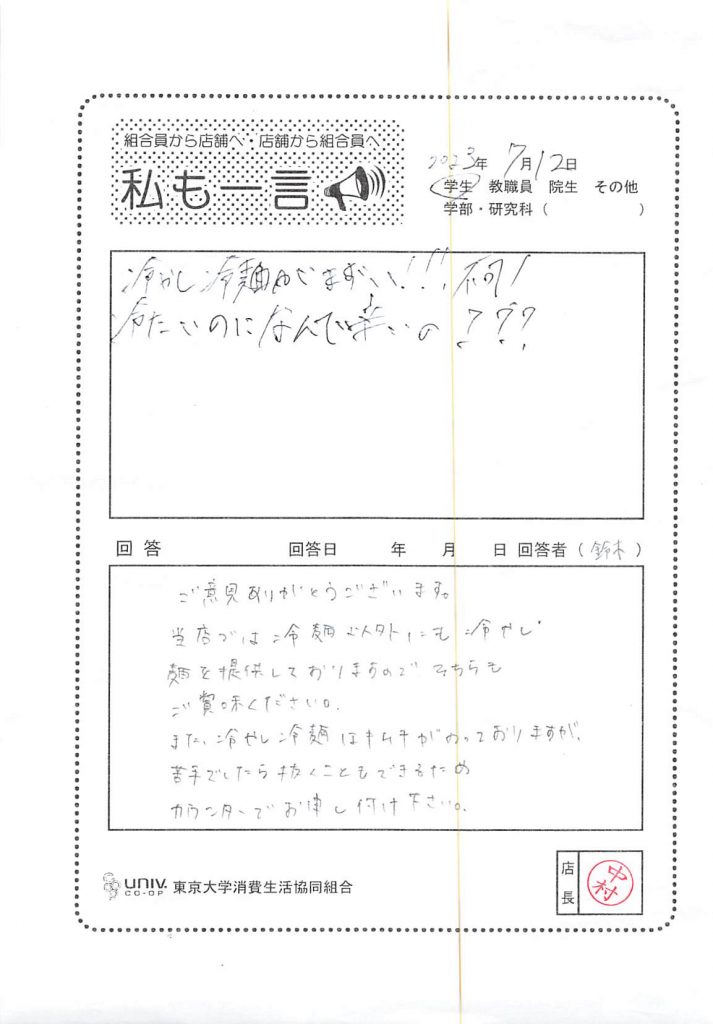 組合員から店舗へ・店舗から組合員へ
私も一言
2023年 7月12日
学生 教職員 院生 その他
学部・研究科( )
冷かし冷麺がまずい!!!何!
冷たいのになんで辛いの???
回答 回答日 年 月 日 回答者(鈴木)
ご意見ありがとうございます。
当店では冷麺以外にも冷やし
麺を提供しておりますのでそちらも
ご賞味ください。
また、冷やし冷麺はキムチがのっておりますが、
苦手でしたら抜くこともできるため
カウンターでお申し付け下さい。
UNIV. CO-OP 東京大学消費生活協同組合
店長 中村